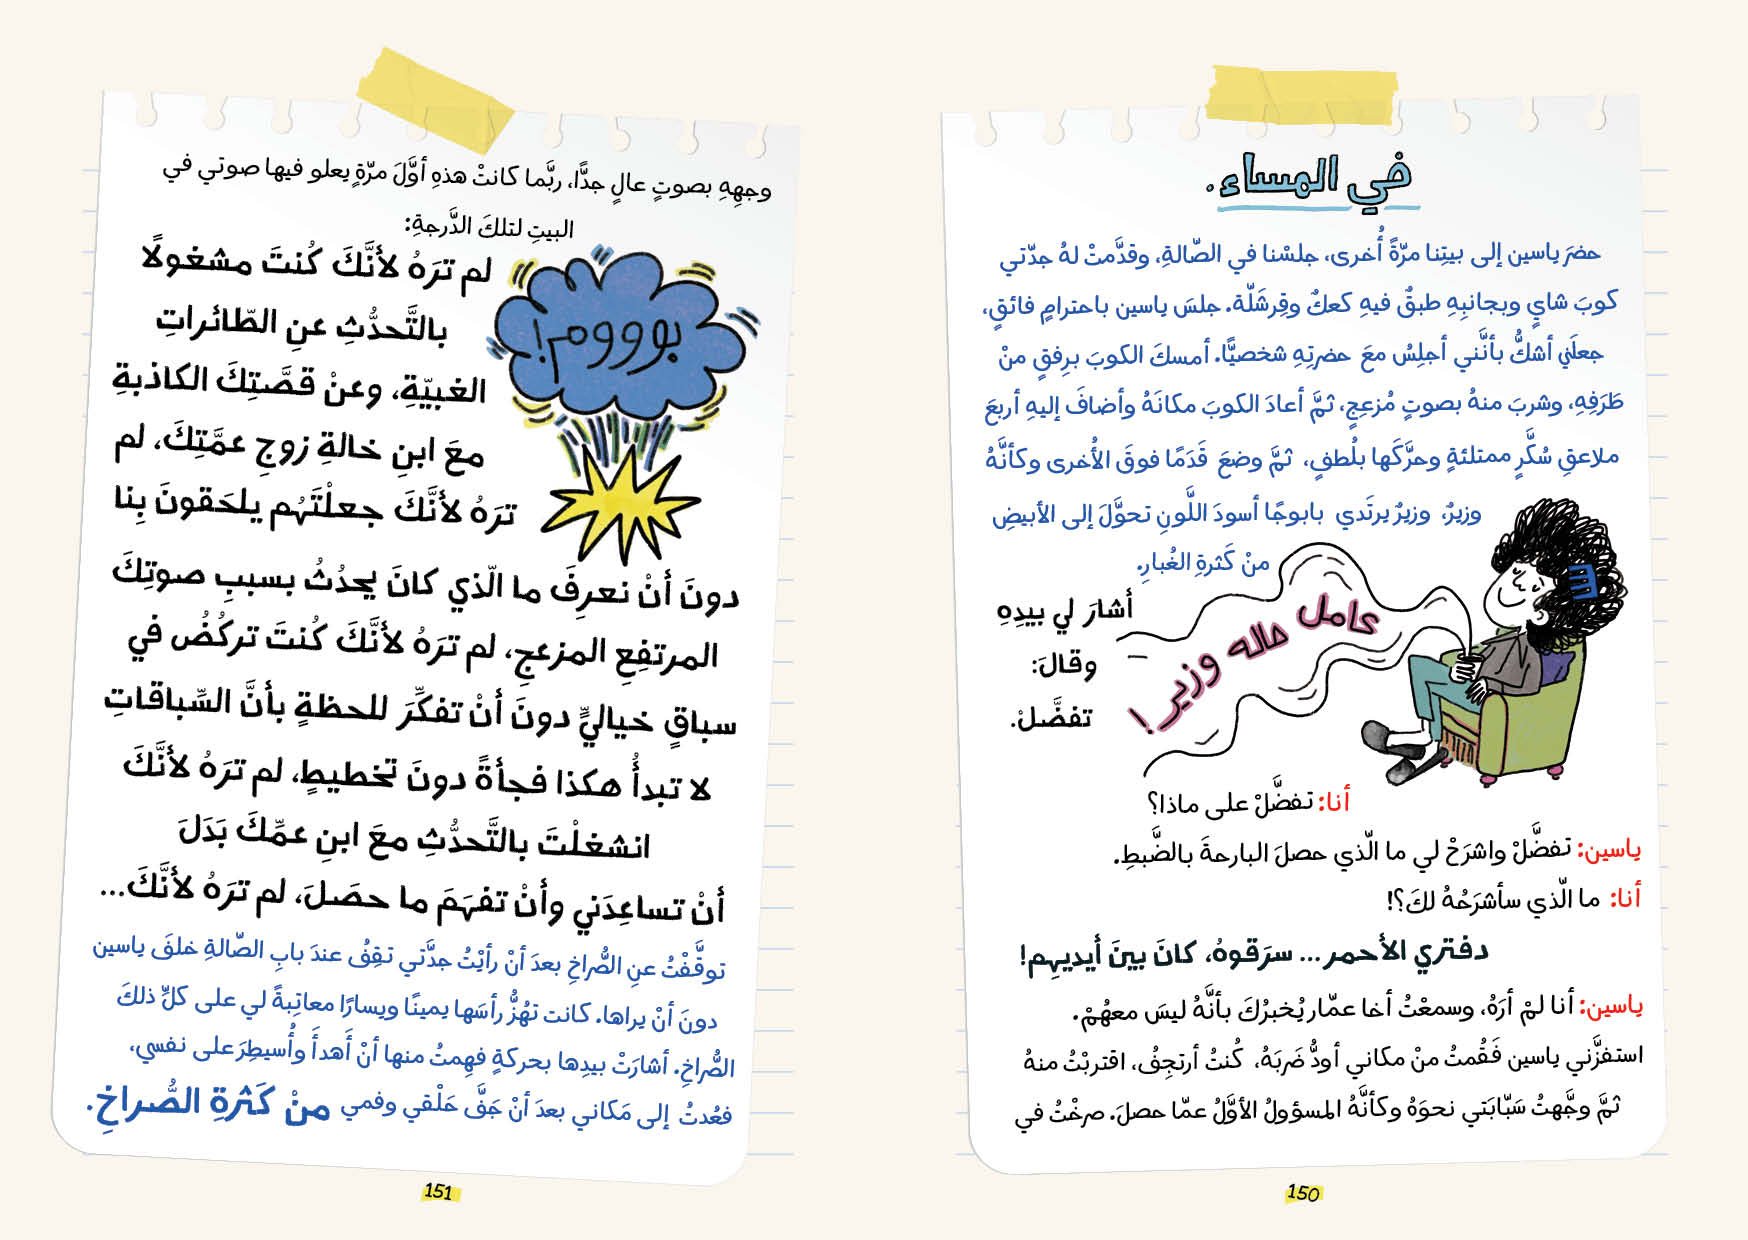 في المساء.
حضرَ ياسين إلى بيتِنا مرّةً أُخرى، جلسْنا في الصّالةِ، وقدَّمتْ لهُ جدّتي
كوبَ شايٍ وبجانبِهِ طبقٌ فيهِ كعكٌ وقِرشَلّة. جلسَ ياسين باحترامٍ فائقٍ،
جعلَني أشكُّ بأنَّني أجلِسُ معَ حضرتِهِ شخصيًّا. أمسكَ الكوبَ برِفقٍ منْ
طَرَفِهِ، وشربَ منهُ بصوتٍ مُزعِجٍ، ثمَّ أعادَ الكوبَ مكانَهُ وأضافَ إليهِ أربعَ
ملاعقِ سُكَّرٍ ممتلئةٍ وحرَّكَها بلُطفٍ، ثمَّ وضعَ قَدَمًا فوقَ الأُخرى وكأنَّهُ
وزيرٌ، وزيرٌ يرتَدي بابوجًا أسودَ اللَّونِ تحوَّلَ إلى الأبيضِ
منْ كَثرةِ الغُبارِ.
أشارَ لي بيدِهِ
وقالَ:
تفضَّلْ.
عامل حاله وزير!
أنا: تفضَّلْ على ماذا؟
ياسين: تفضَّلْ واشرَحْ لي ما الّذي حصلَ البارحةَ بالضَّبطِ.
أنا: ما الّذي سأشرَحُهُ لكَ؟!
دفتري الأحمر... سرَقوهُ، كانَ بينَ أيديهِم!
ياسين: أنا لمْ أرَهُ، وسمعْتُ أخا عمّار يُخبرُكَ بأنَّهُ ليسَ معهُمْ.
استفزَّني ياسين فَقُمتُ منْ مكاني أودُّ ضَربَهُ، كُنتُ أرتجِفُ، اقتربْتُ منهُ
ثمَّ وجَّهتُ سَبّابَتي نحوَهُ وكأنَّهُ المسؤولُ الأوَّلُ عمّا حصلَ. صرخْتُ في
150
وجهِهِ بصوتٍ عالٍ جدًّا، ربَّما كانتْ هذهِ أوَّلَ مرّةٍ يعلو فيها صوتي في
البيتِ لتلكَ الدَّرجةِ:
لم ترَهُ لأنَّكَ كُنتَ مشغولًا
بالتَّحدُّثِ عنِ الطّائراتِ
الغبيّةِ، وعنْ قصَّتِكَ الكاذبةِ
معَ ابنِ خالةِ زوجِ عمَّتِكَ، لم
ترَهُ لأنَّكَ جعلْتَهُم يلحَقونَ بِنا
بوووم!
دونَ أنْ نعرِفَ ما الّذي كانَ يحدُثُ بسببِ صوتِكَ
المرتفِعِ المزعجِ، لم ترَهُ لأنَّكَ كُنتَ تركُضُ في
سباقٍ خياليٍّ دونَ أنْ تفكِّرَ للحظةٍ بأنَّ السِّباقاتِ
لا تبدأُ هكذا فجأةً دونَ تخطيطٍ، لم ترَهُ لأنَّكَ
انشغلْتَ بالتَّحدُّثِ معَ ابنِ عمِّكَ بَدَلَ
أنْ تساعِدَني وأنْ تفهَمَ ما حصَلَ، لم ترَهُ لأنَّكَ...
توقَّفْتُ عنِ الصُّراخِ بعدَ أنْ رأيْتُ جدَّتي تقِفُ عندَ بابِ الصّالةِ خلفَ ياسين
دونَ أنْ يراها. كانت تهُزُّ رأسَها يمينًا ويسارًا معاتِبةً لي على كلِّ ذلكَ
الصُّراخِ. أشارَتْ بيدِها بحركةٍ فهِمتُ منها أنْ أَهدأَ وأُسيطِرَ على نفسي،
فعُدتُ إلى مَكاني بعدَ أنْ جَفَّ حَلْقي وفمي منْ كَثرةِ الصُّراخِ.
151